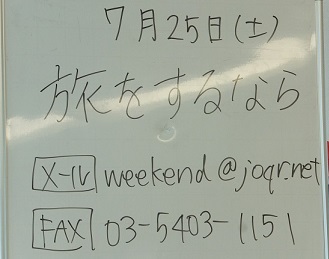 7月25日(土)
旅をするなら
メール weekend@joqr.net
FAX 03-5403-1151